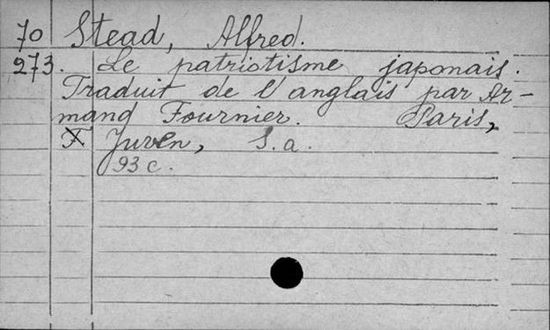 70 Stead, Alfred.
273. Le patriotisme japonais.
Traduit de l'anglais par Ar-
mand Fournier. Paris,
X Juven, S.a.
93 c.